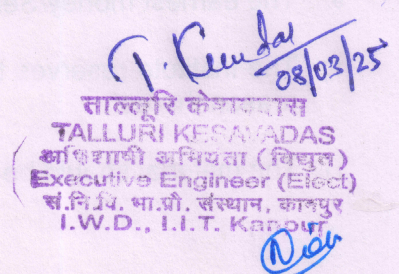 08/03/25
ताल्लूरि केशवदास
TALLURI KESAVADAS
अधिशाषी अभियंता (विद्युत)
Executive Engineer (Elect)
सं.नि.वि. भा.प्रौ. संस्थान, कानपुर
I.W.D., I.I.T. Kanpur